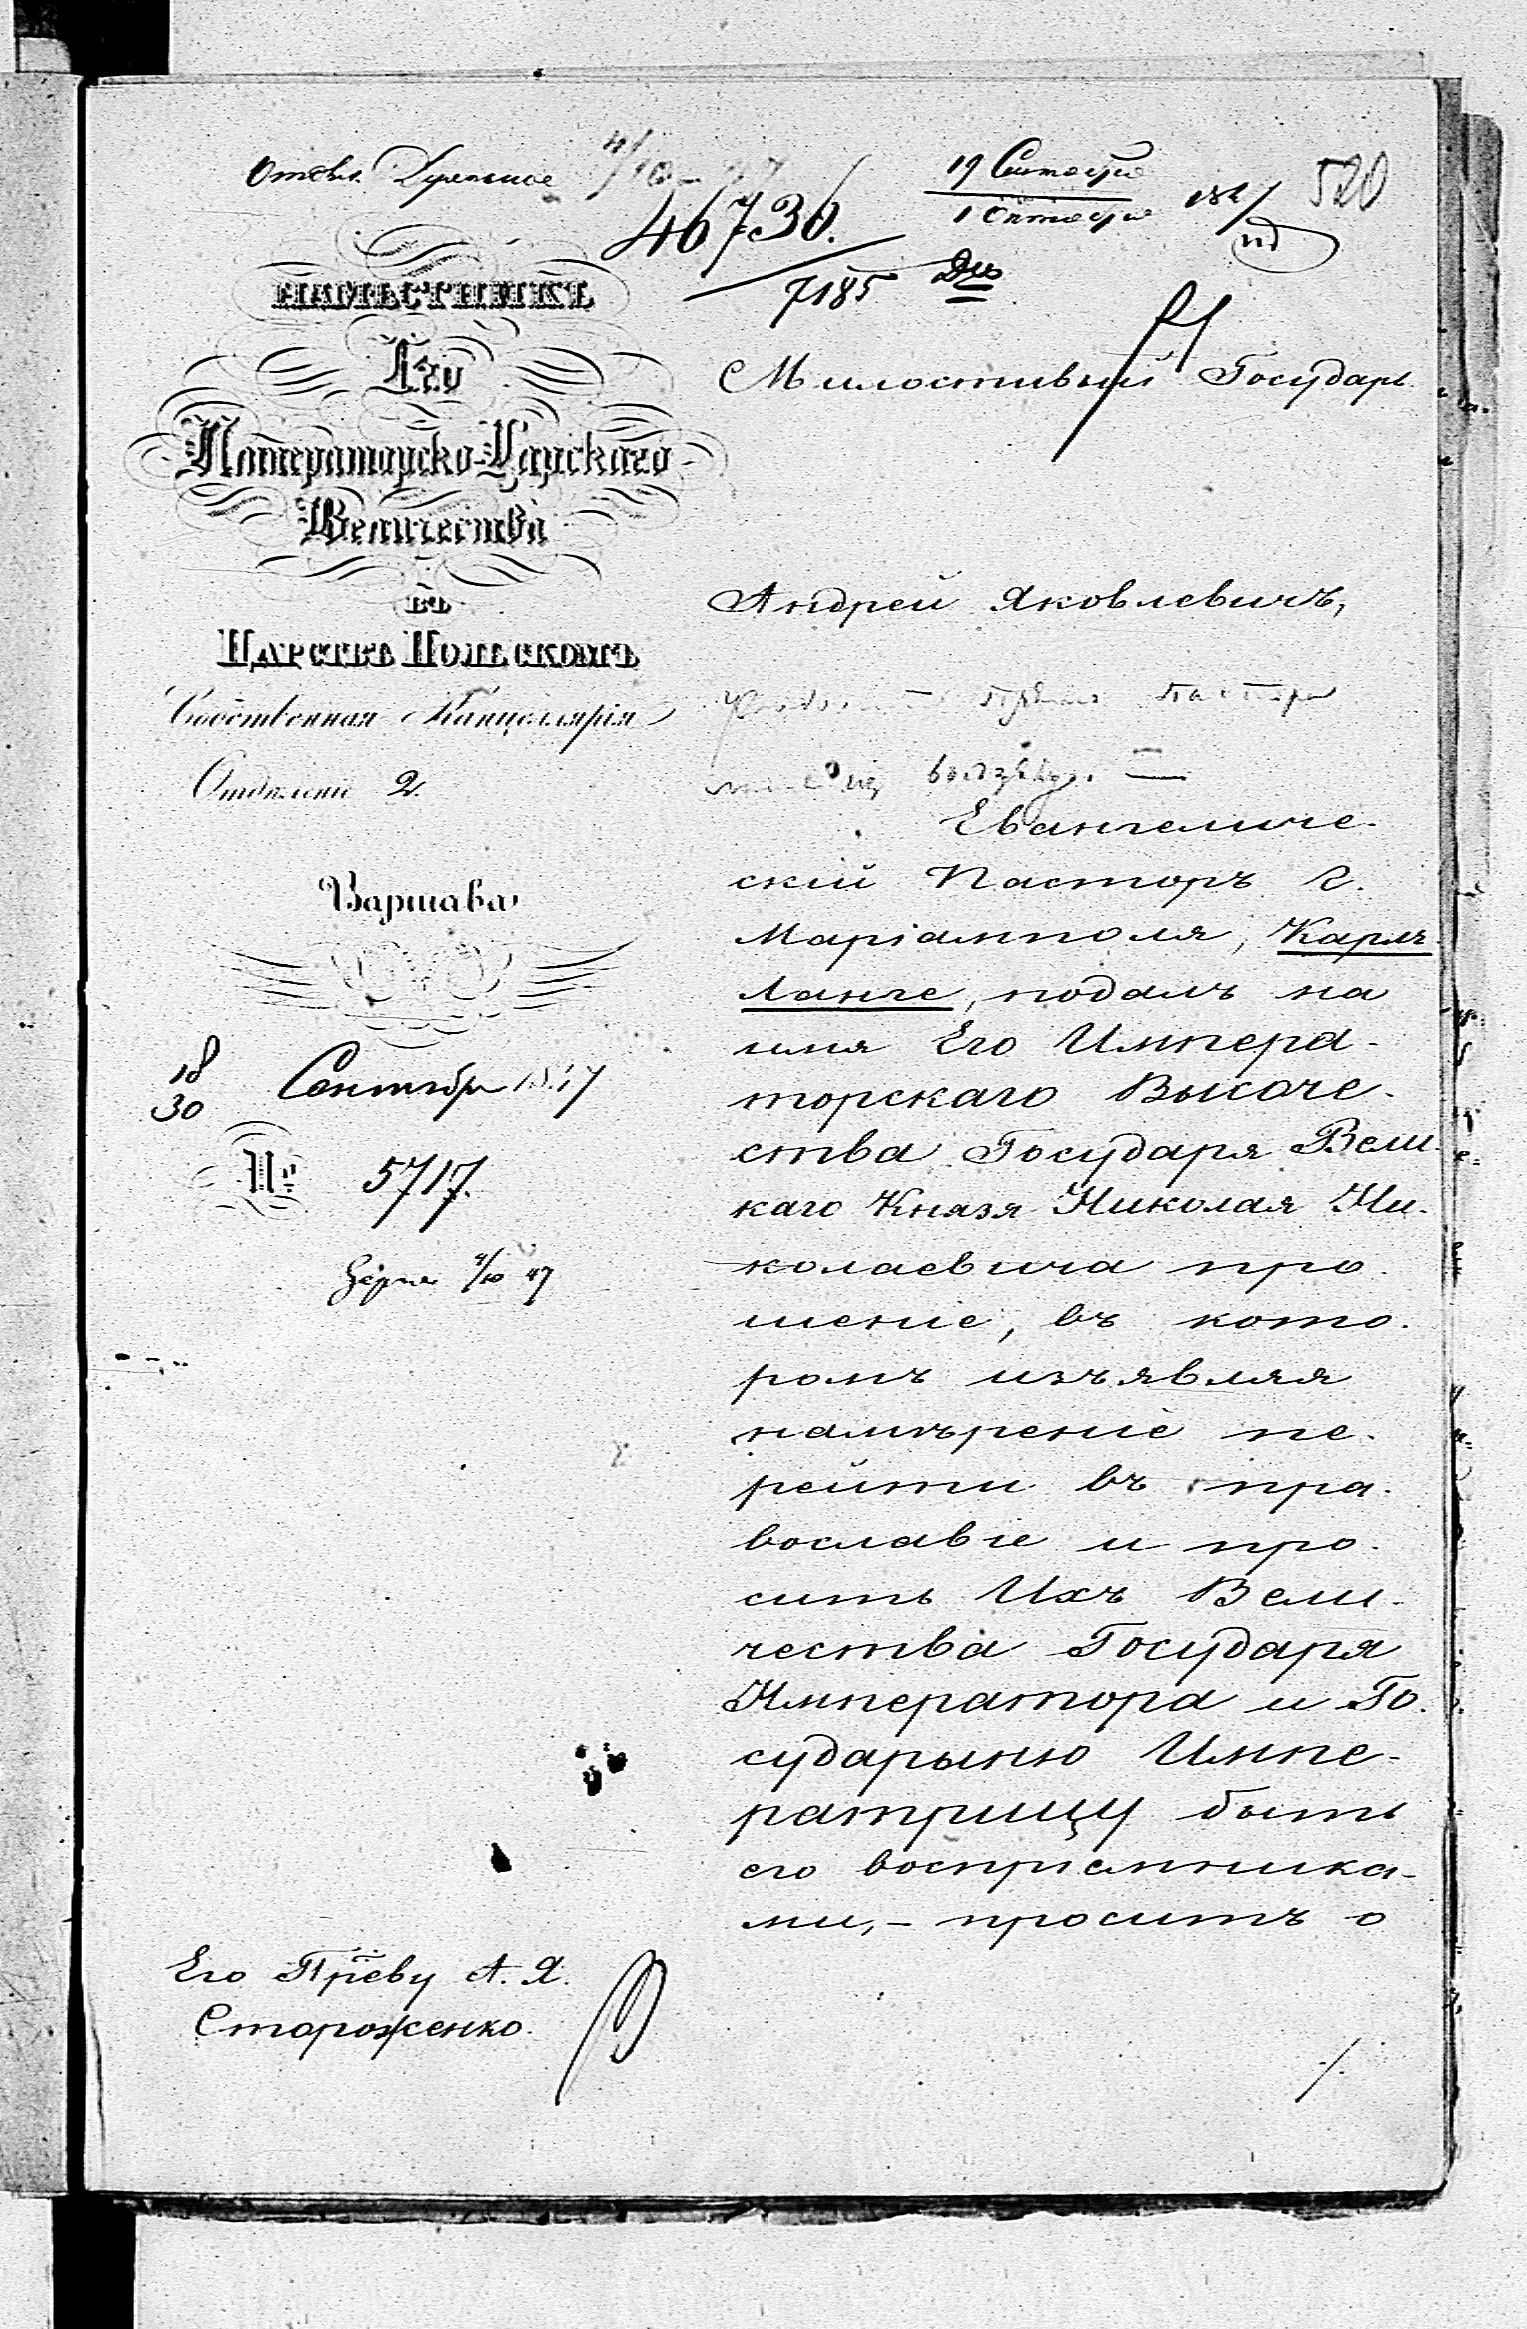 520
46736
7185
НАМѢСТНИКЪ
Его
Императорско-Царскаго
Величества
въ
Царствѣ Польскомъ
Собственная Канцелярія
Отдѣленіе 2.
Варшава
18
30 Сентября 1847
№ 5717.
Милостивый Государь
Андрей Яковлевичъ,
Евангеличе-
скій Пасторъ г.
Маріамполя, Карлъ
Ланге, подалъ на
имя Его Импера-
торскаго Высоче-
ства Государя Вели-
каго Князя Николая Ни-
колаевича про-
шеніе, въ кото-
ромъ изъявляя
намѣреніе пе-
рейти въ пра-
вославіе и про-
сить Ихъ Вели-
чества Государя
Императора и Го-
сударыню Импе-
ратрицу быть
его воспріемника-
ми,- проситъ о
Его Пр̈еву А. Я.
Стороженко.